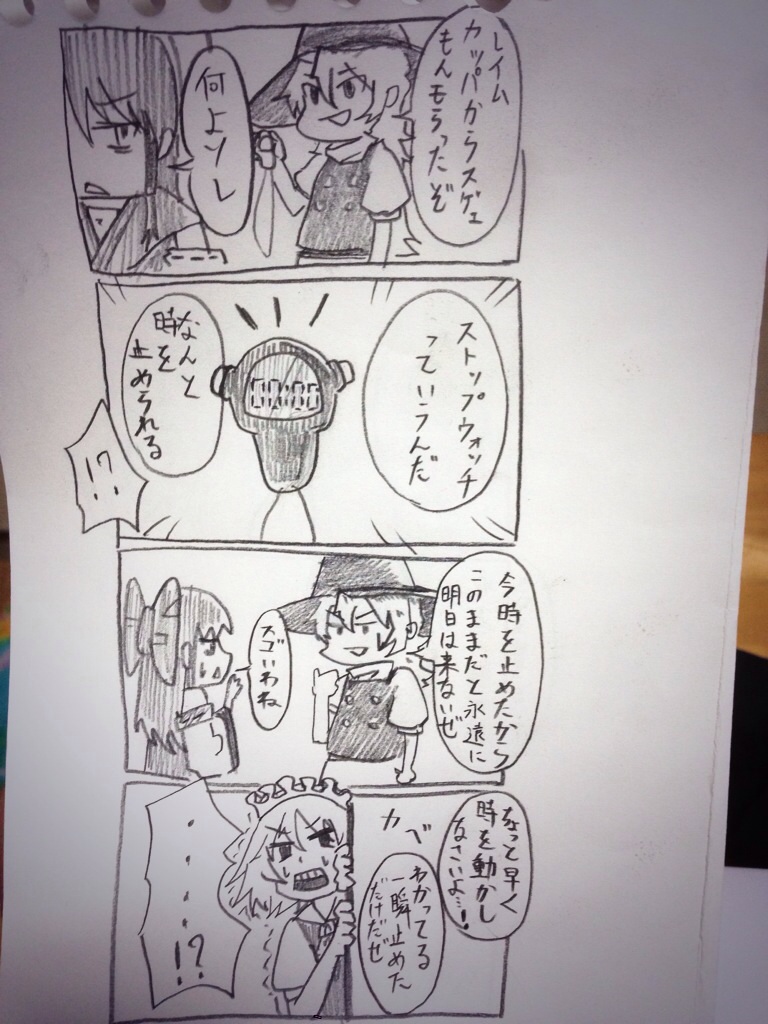 レイム
カッパからスゲェ
もんモらったぞ
何よソレ
ストップウォッチ
っていうんだ
00:00
なんと
時を
止められる
!?
今時を止めたから
このままだと永遠に
明日は来ないぜ
スゴいわね
ちょっと早く
時を動かし
なさいよ…!
わかってる
一瞬止めた
だけだぜ
カベ
・・・・!?